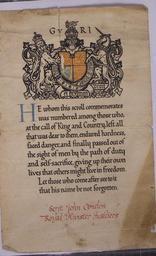 G V R I
HE whom this scroll commemorates
was numbered among those who,
at the call of King and Country, left all
that was dear to them, endured hardness,
faced danger, and finally passed out of
the sight of men by the path of duty
and self-sacrifice, giving up their own
lives that others might live in freedom.
Let those who come after see to it
that his name be not forgotten.
Sergt. John
Royal Munster Fusiliers